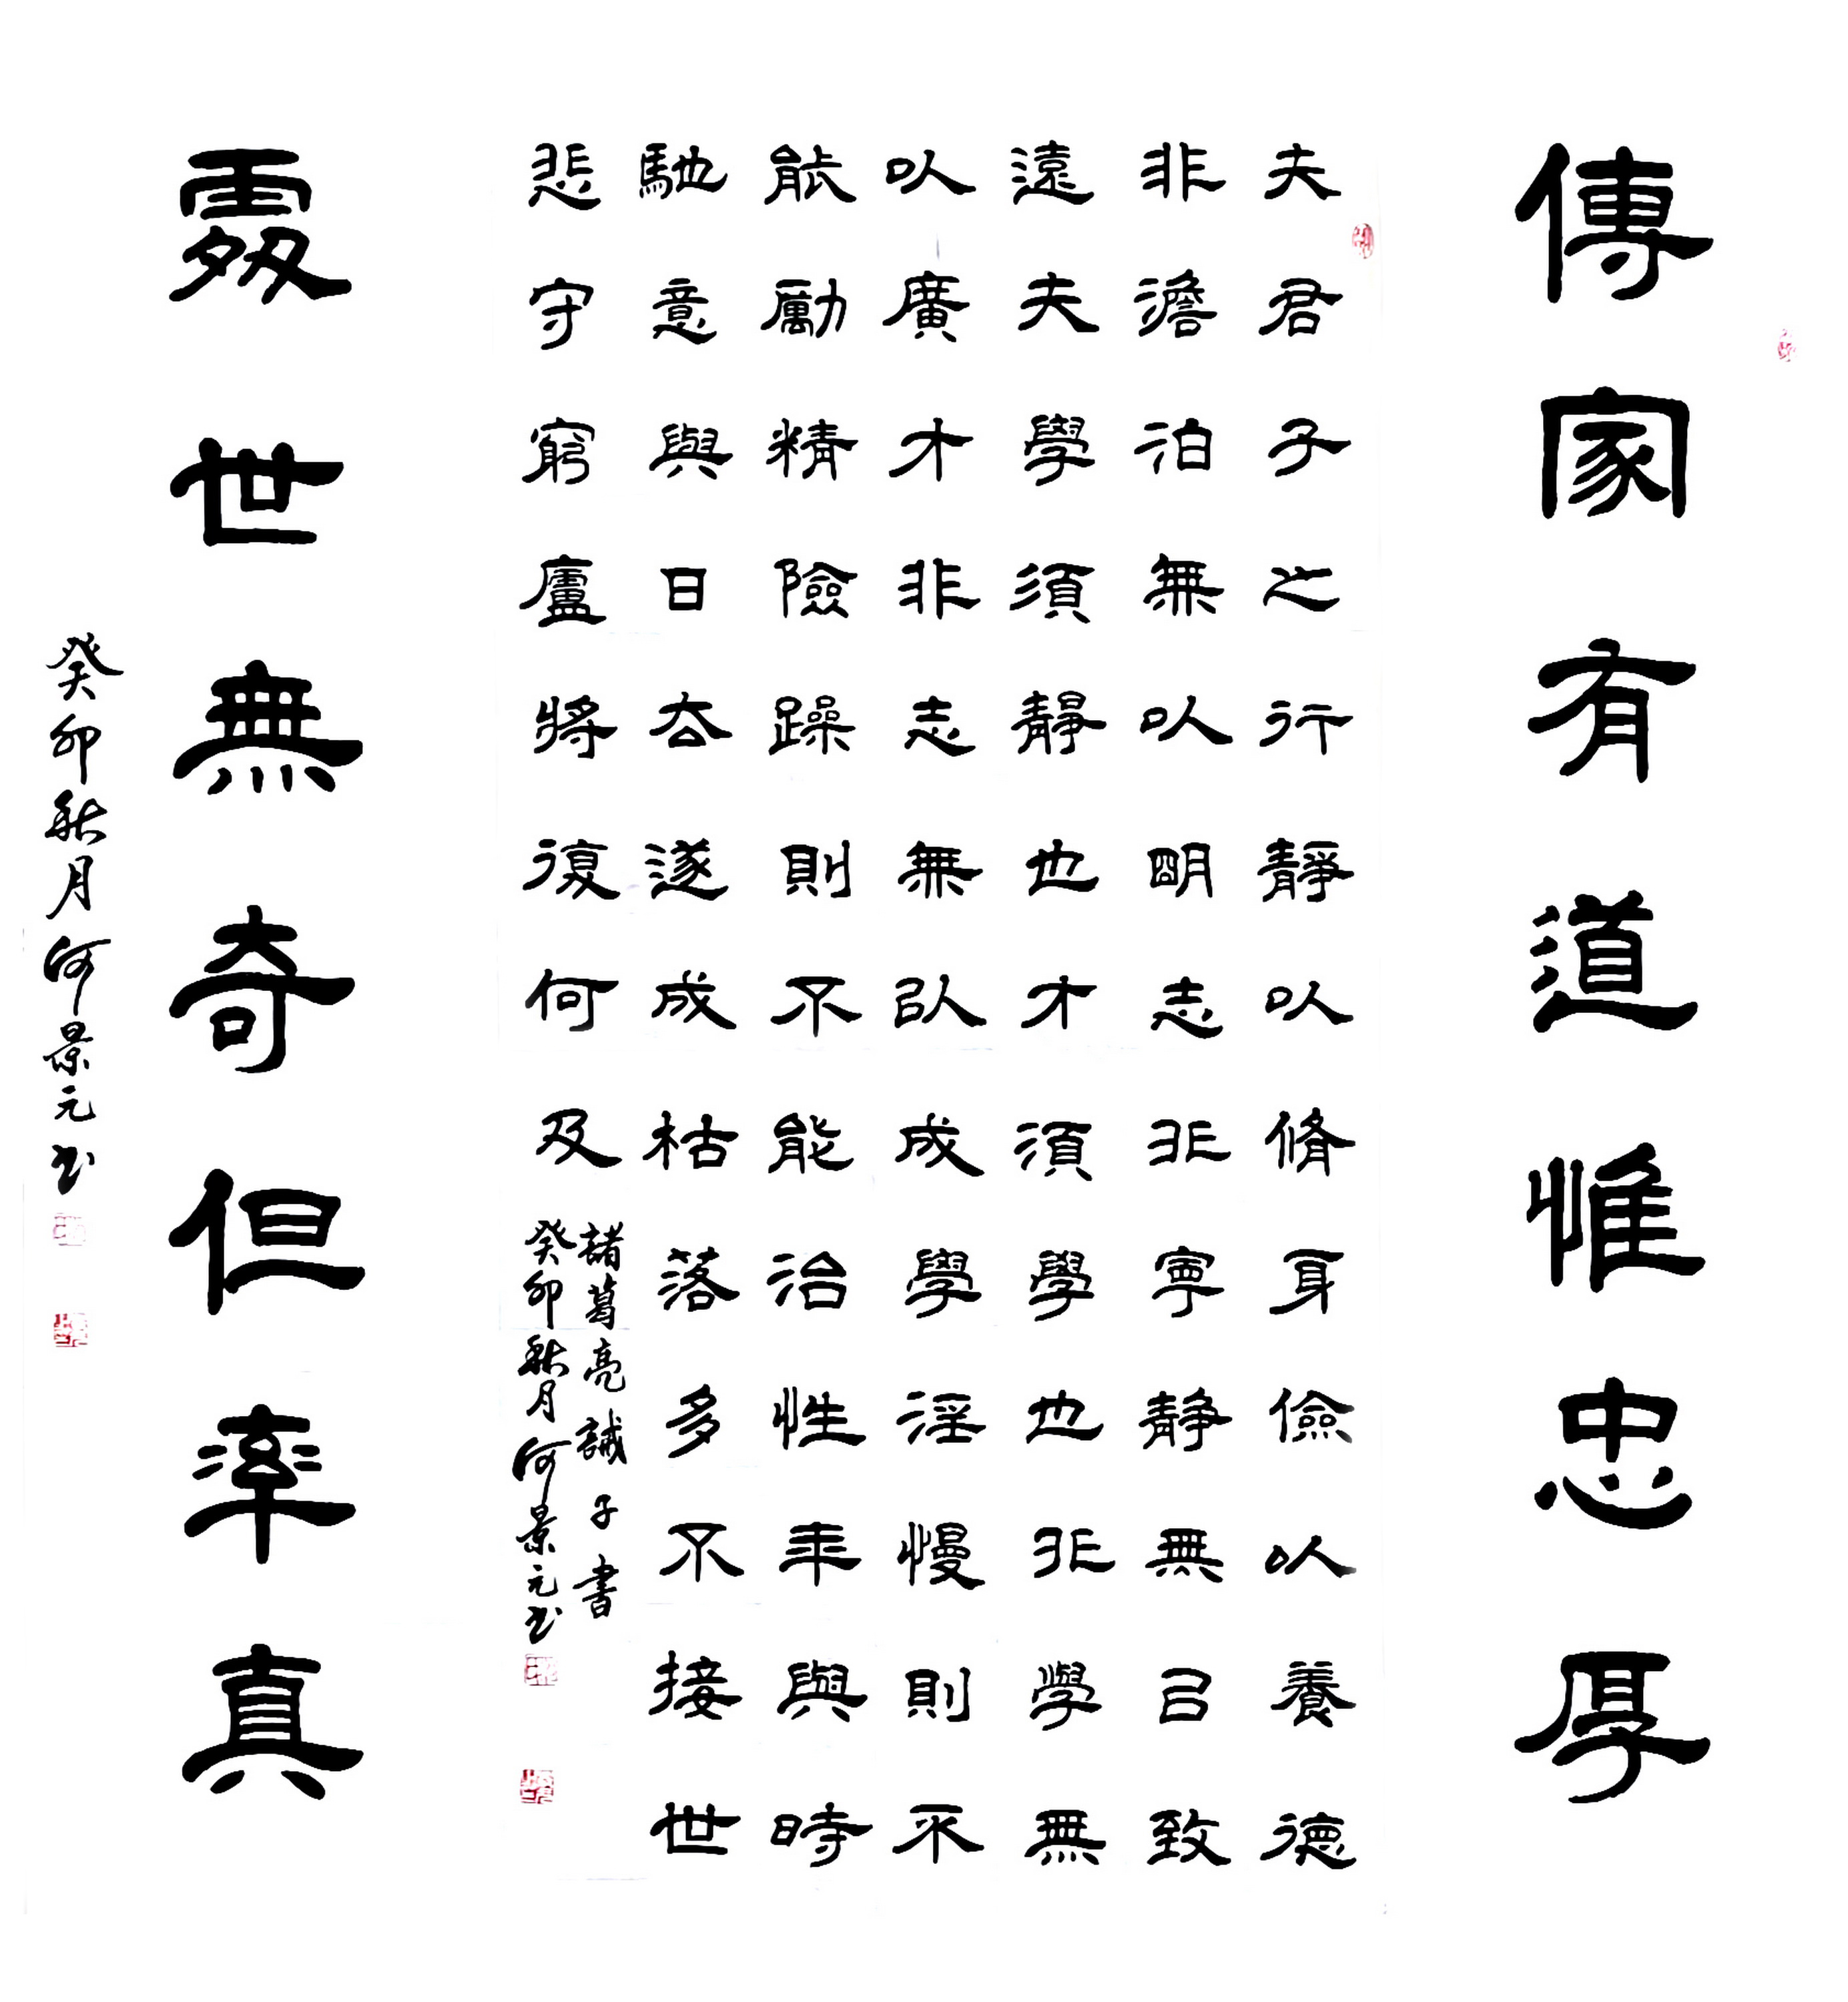 傳家有道惟忠厚
夫君子之行靜以脩身儉以養德
非澹泊無以明志非寧靜無以致
遠夫學須靜也才須學也非學無
以廣才非志無以成學淫慢則不
能勵精險躁則不能治性年與時
馳意與日去遂成枯落多不接世
悲守窮廬將復何及
諸葛亮誡子書
癸卯秋月何景元书
處世無奇但率真
癸卯秋月何景元书